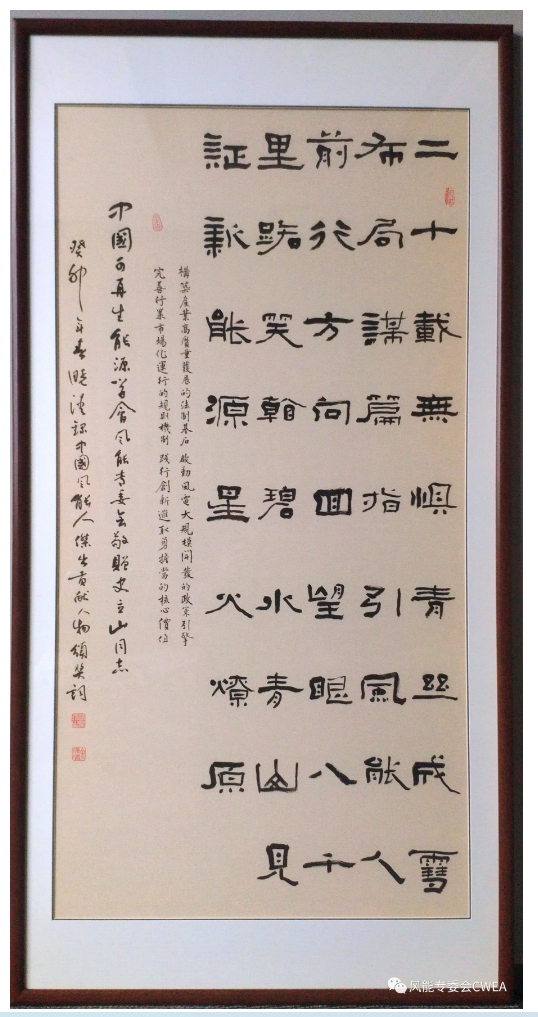 二十載無惧青丝成雪
布局謀篇指引風能人
前行方向回望眼八千
里路笑看碧水青山見
証新能源星火燎原
構築産業高質量發展的法制基石 啟動風電大規模開發的政策引擎
完善行業市場化運行的規則機制 践行創新進取勇擔當的核心價值
中國可再生能源学會风能专委会敬贈史立山同志
癸卯年春曉漢録中國风能人傑出貢献人物頒奖詞
风能专委会CWEA